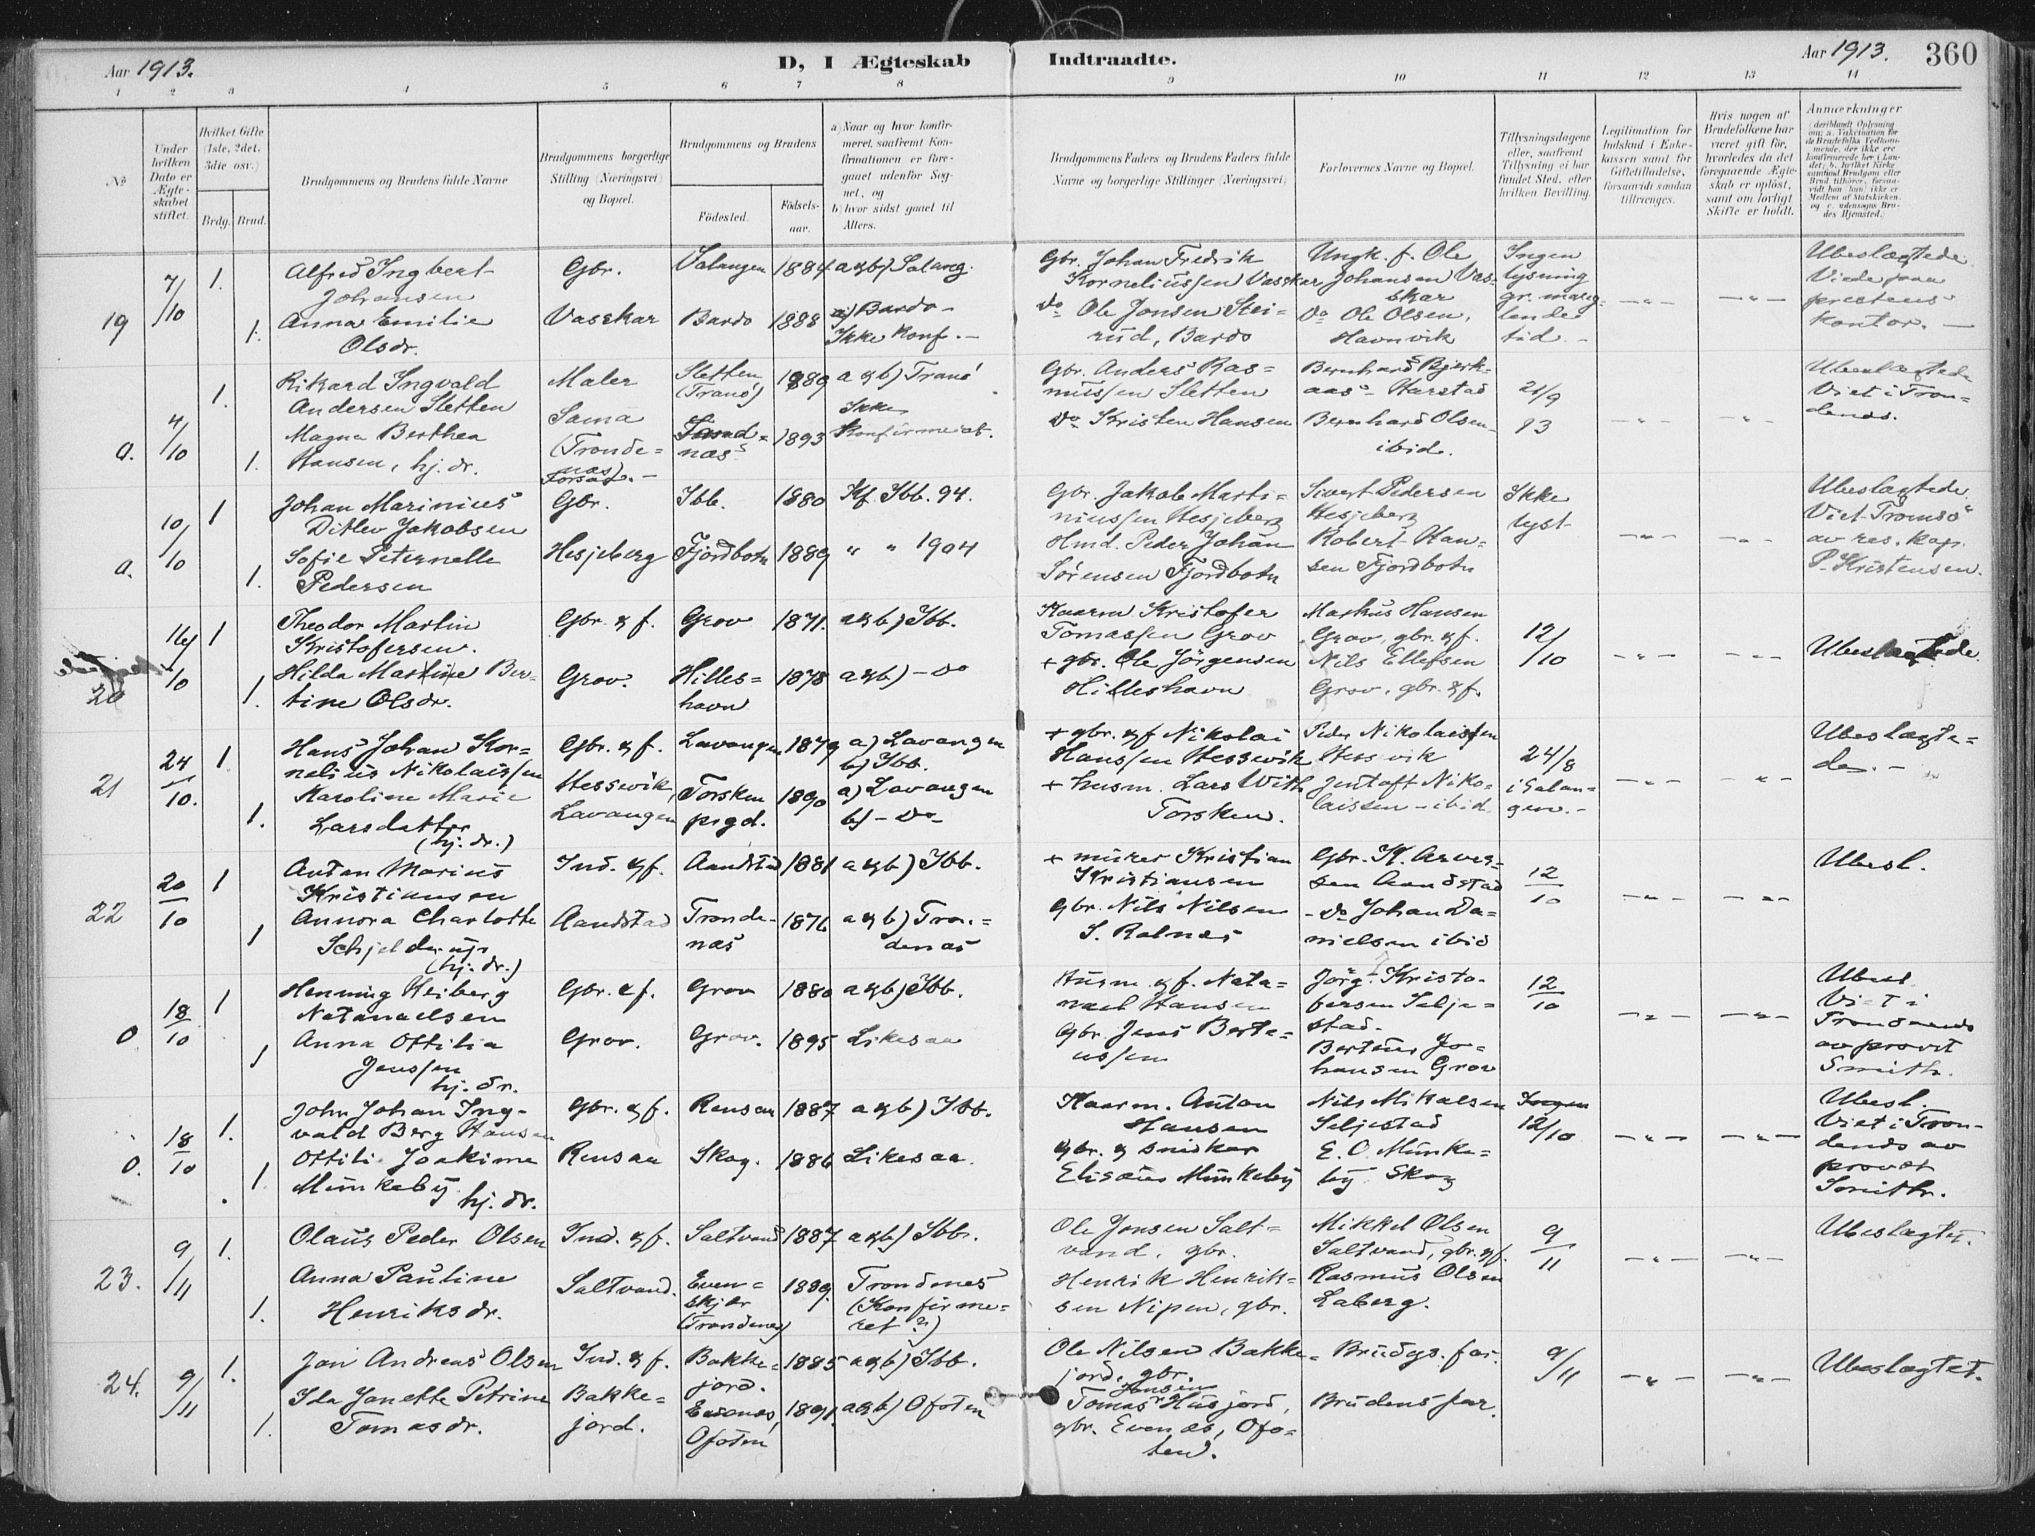 Aar 1913.
D, I Ægteskab Indtraadte.
Aar 1913. 360
1 2 3 4 5 6 7 8 9 10 11 12 13 14
No
Under hvilken Dato er Ægteskabet stiftet.
Hvilket Gifte (1ste, 2det, 3die osv.)
Brdg. Brud.
Brudgommens og Brudens fulde Navne
Brudgommens borgerlige Stilling (Næringsvei) og Bopæl.
Brudgommens og Brudens
Fødested.
Fødselsaar.
a) Naar og hvor konfirmeret, saafremt Konfirmationen er foregaaet udenfor Sognet, og
b) hvor sidst gaaet til Alters.
Brudgommens Faders og Brudens Faders fulde Navne og borgerlige Stillinger (Næringsvei)
Forlovernes Navne og Bopæl.
Tillysningsdagene eller, saafremt Tillysning ei har fundet Sted, efter hvilken Bevilling.
Legitimation for Indskud i Enkekassen samt for Giftetilladelse, forsaavidt saadan tiltrænges.
Hvis nogen af Brudefolkene har været gift før, hvorledes da det foregaaende Ægteskab er opløst, samt om lovligt Skifte er holdt.
Anmærkninger
19 7/10 1. Alfred Ingbert Johansen Gbr. Salangen 1884 a&b) Salang. Gbr. Johan Fredrik Korneliussen Vasskar Ungk. f. Ole Johansen Vasskar Ingen lysning gr. mang lende tid. Ubeslægtede Viede paa prestens kontor.
1. Anna Emilie Olsdr. Vasskar Bardo 1888 a) Bardo - Ikke konf. - Do Ole Jonsen Steirud, Bardo Do Ole Olsen, Havnvik
a. 4/10 1. Rikard Ingvald Andersen Sletten Maler Sletten (Tranö) 1889 a&b) Tranö Gbr. Anders Rasmussen Sletten Bernhard Bjerkaas Harstad 21/9 13 Ubeslægtede Viet i Trondenæs.
1. Magna Berthea Hansen, hj. dr. Sama (Trondenæs) 1893 Ikke konfirmert. Do Kristen Hansen Bernhard Olsen ibid.
a. 10/10 1 Johan Marinius Ditlev Jakobsen Gbr. Ibb. 1880 Kf. Ibb. 94. Gbr. Jakob Martiniussen Hesjeberg Sivert Pedersen Hesjeberg Ikke lyst Ubeslægtede Viet Tromsö av res. kap. P. Kristensen.
1. Sofie Peternelle Pedersen Hesjeberg Fjordbotn 1889 " " 1904 Hmd. Peder Johan Sørensen Fjordbotn Robert Hansen Fjordbotn
20 16/10 1 Theodor Martin Kristofersen. Gbr. & f. Grov 1871. a&b) Ibb. Kaarm Kristofer Tomassen Grov Markus Hansen Grov, gbr. & f. 12/10 Ubeslægtede.
1. Hilda Martine Bertine Olsdr. Grov. Hilleshavn 1878 a&b) - Do + gbr. Ole Jörgensen Hilleshavn Nils Ellefsen Grov, gbr. & f.
21 24/10. 1 Hans Johan Kornelius Nikolaissen Gbr. & f. Lavangen 1879 a) Lavangen b) Ibb. + gbr. & f Nikolai Hanssen Hessvik Peder Nikolaissen Hessvik 24/8 i Salangen. - Ubeslægtede. -
1. Karoline Marie Larsdatter (hj. dr.) Hessvik, Lavangen Torsken prgd. 1890 a) Lavangen b) - Do - + husm. Lars With Torsken. Jentoft Nikolaissen - ibid
22 20/10 1 Anton Marius Kristiansen Ind. & f. Aandstad 1881 a&b) Ibb. + murer Kristian Kristiansen Gbr. K. Arvesen Aandstad 12/10 Ubesl.
1 Annora Charlotte Schjelderup (hj. dr.) Aandstad Trondenæs 1876 a&b) Trondenæs Gbr. Nils Nilsen S. Rolnæs - Do Johan Danielsen ibid
0 18/10 1 Henning Heiberg Natanaelsen Gbr. & f. Grov 1880 a&b) Ibb. Husm. & f. Natanael Hansen Jörg. Kristofersen Seljestad. 12/10 Ubesl. Viet i Trondenæs av provst Smith.
1 Anna Ottilia Jenssen hj. dr. Grov. Grov. 1895 Likesaa Gbr. Jens Berteussen Berteus Johansen Grov
0. 18/10 1. John Johan Ingvald Berg Hansen Gbr. & f. Rensaa 1887 a&b) Ibb. Kaarm. Anton Hansen Nils Mikalsen Seljestad Ingen 12/10 Ubesl. Viet i Trondenæs av provst Smith.
1 Ottilie Joakime Munkeby hj. dr. Rensaa Skog. 1886 Likesaa. Gbr. og snedker Elisæus Munkeby E. O. Munkeby Skog
23. 9/11 1. Olaus Peder Olsen Ind. & f. Saltvand 1887 a&b) Ibb. Ole Jonsen Saltvand, gbr. Mikkel Olsen Saltvand, gbr. & f. 9/11 Ubeslægtet.
1. Anna Pauline Henriksdr. Saltvand. Evenskjær (Trondenes) 1889. Trondenes (Konfirmeret?) Henrik Henriksen Nipen, gbr. Rasmus Olsen Laberg.
24. 9/11 1. Jan Andreas Olsen Ind. & f. Bakkejord. 1885 a&b) Ibb. Ole Nilsen Bakkejord, gbr. Brudgs. far. 9/11 Ubeslægtet.
1. Ida Janette Petrine Tomasdr. Bakkejord. Evenes, Ofoten 1891. a&b) Ofoten Tomas Jensen Husjord, gbr. Evenæs, Ofoten. Brudens far.